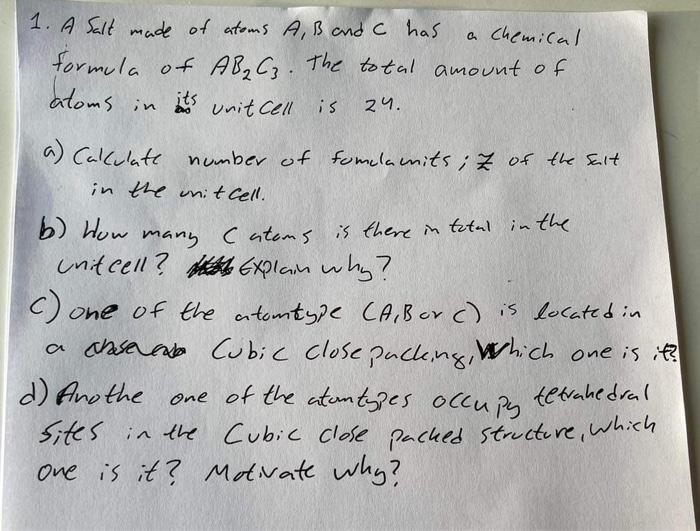 1. A Salt made of atoms A, B and C has a chemical
formula of AB₂C₃. The total amount of
atoms in its unit cell is 24.
a) Calculate number of fomulaunits; Z of the Salt
in the unit cell.
b) How many C atoms is there in total in the
unit cell? Explain why?
C) one of the atomtype (A, B or C) is located in
a Cubic close packing, Which one is it?
d) Anothe one of the atomtypes occupy tetrahedral
Sites in the Cubic close packed structure, which
one is it? Motivate why?